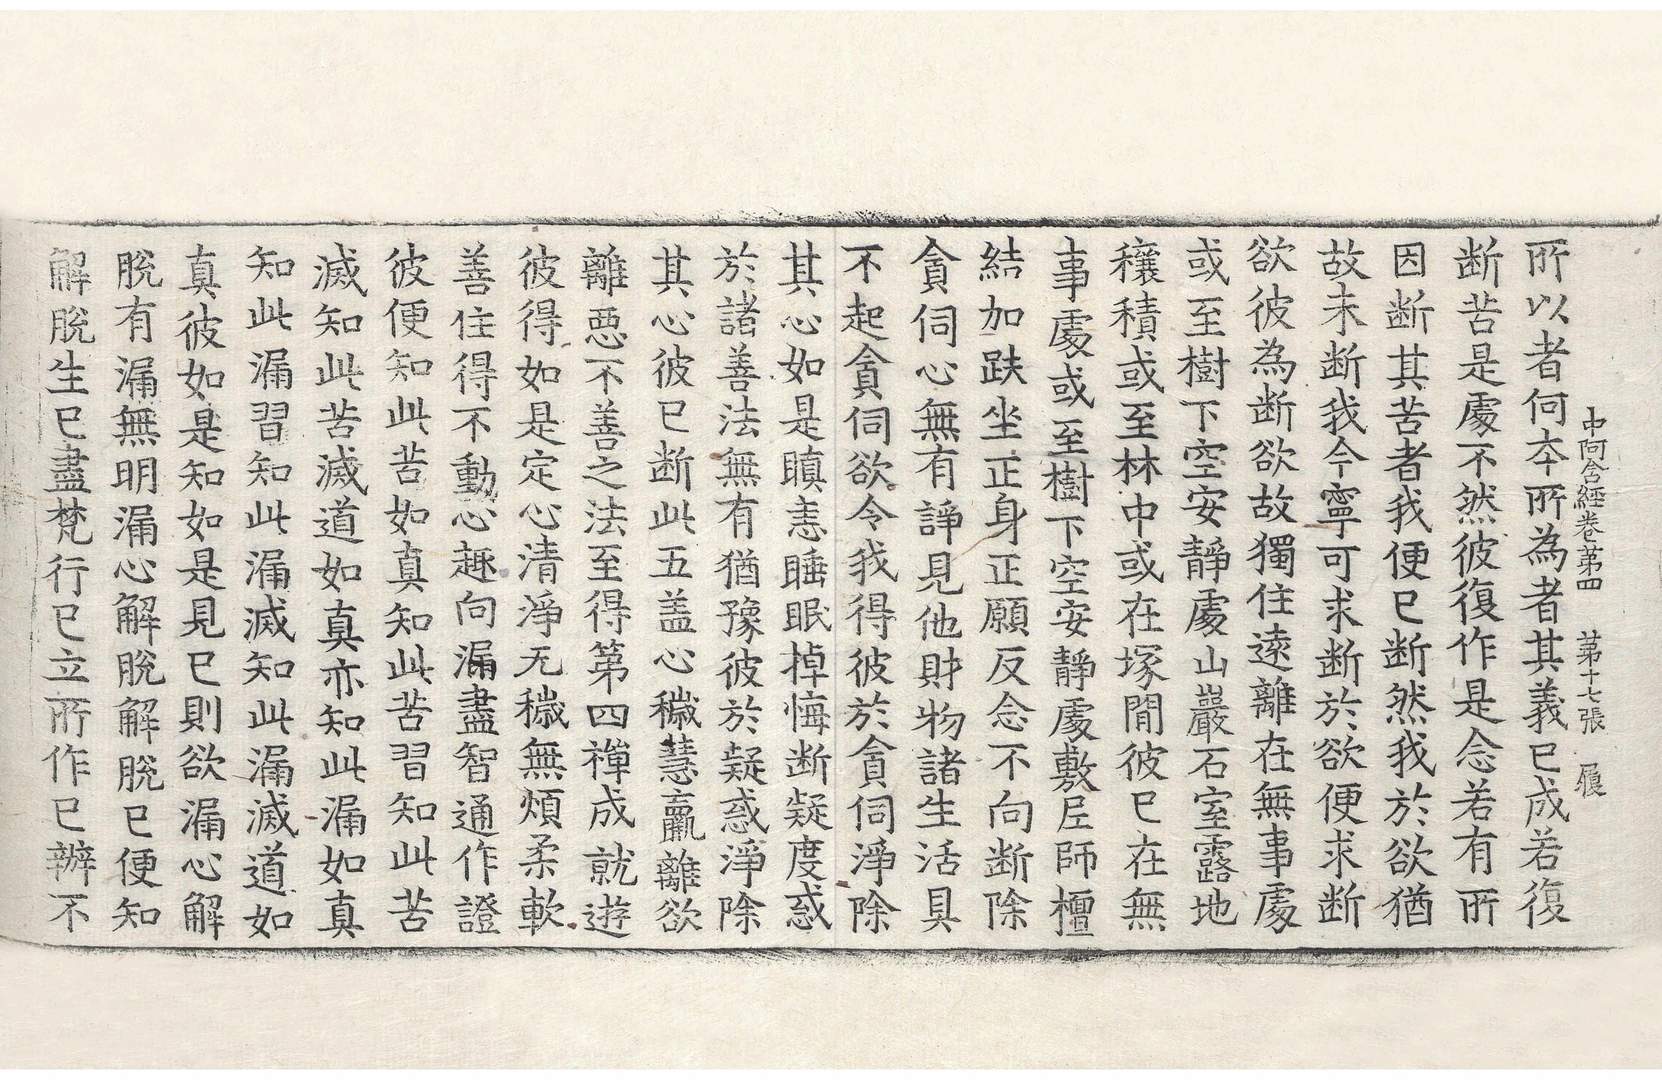 中阿含經卷第四 第十七張 履
所以者何本所為者其義已成若復
断苦是處不然彼復作是念若有所
因断其苦者我便已断然我於欲猶
故未断我今寧可求断於欲便求断
欲彼為断欲故獨住遠離在無事處
或至樹下空安靜處山巖石室露地
穰積或至林中或在塚間彼已在無
事處或至樹下空安靜處敷尼師檀
結加趺坐正身正願反念不向断除
貪伺心無有諍見他財物諸生活具
不起貪伺欲令我得彼於貪伺淨除
其心如是瞋恚睡眠掉悔断疑度惑
於諸善法無有猶豫彼於疑惑淨除
其心彼已断此五盖心穢慧羸離欲
離惡不善之法至得第四禪成就遊
彼得如是定心清淨无穢無煩柔軟
善住得不動心趣向漏盡智通作證
彼便知此苦如真知此苦習知此苦
滅知此苦滅道如真亦知此漏如真
知此漏習知此漏滅知此漏滅道如
真彼如是知如是見已則欲漏心解
脫有漏無明漏心解脫解脫已便知
解脫生已盡梵行已立所作已辦不